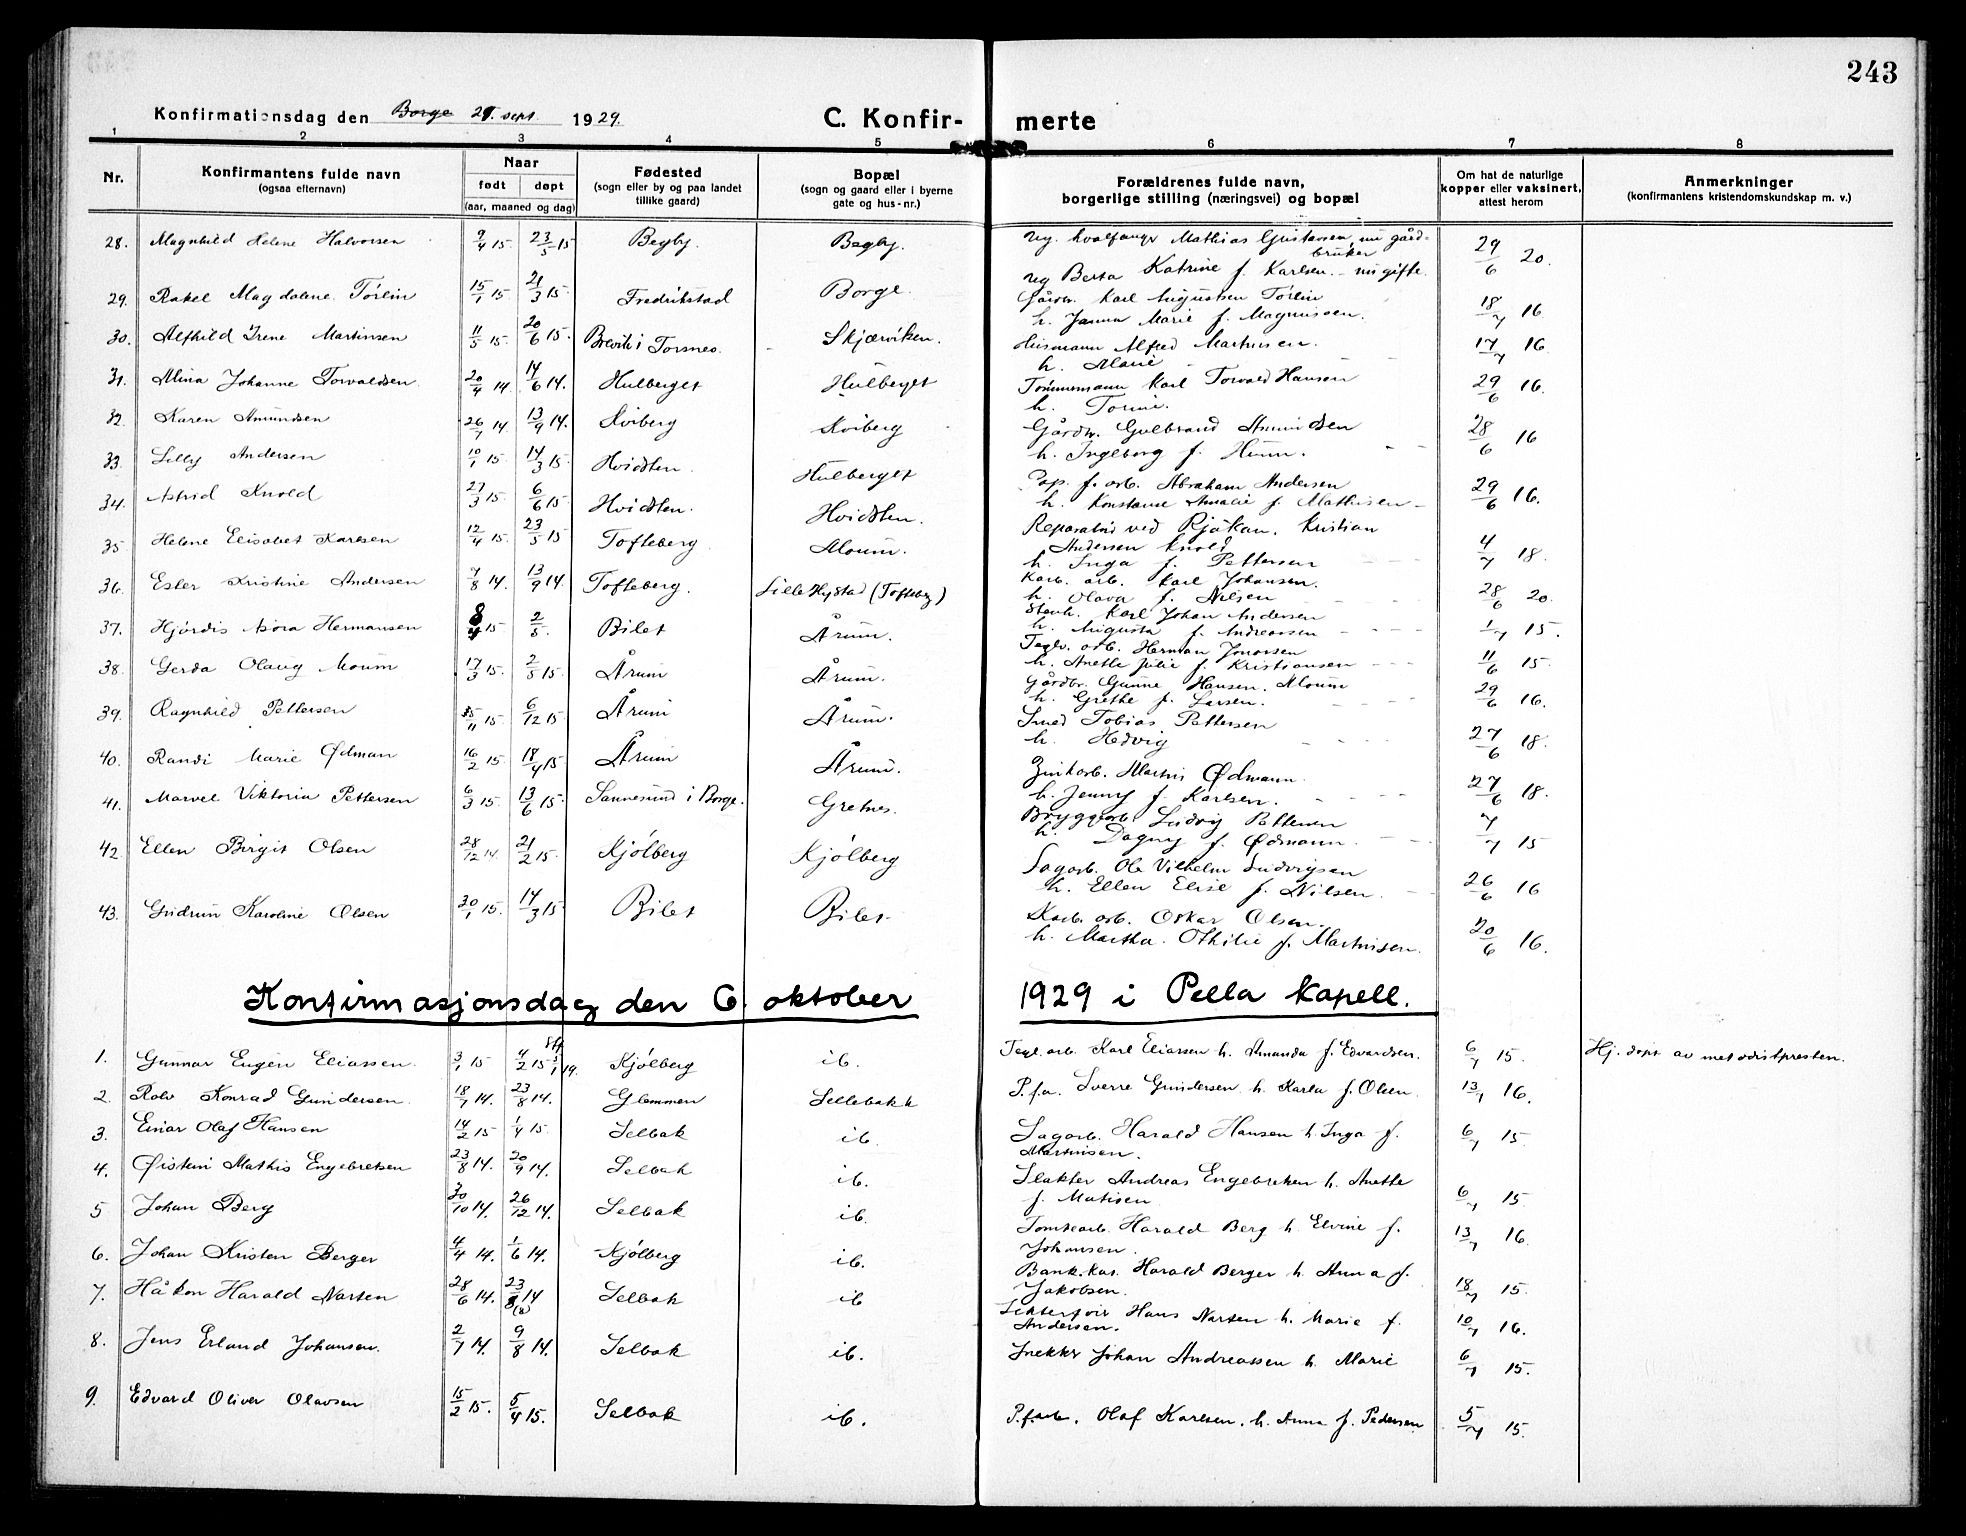 243
Konfirmationsdag den Borge 29. sept. 1929.
C. Konfir- merte
1 2 3 4 5 6 7 8
Nr.
Konfirmantens fulde navn
(ogsaa efternavn)
Naar
født døpt
(aar, maaned og dag)
Fødested
(sogn eller by og paa landet
tillike gaard)
Bopæl
(sogn og gaard eller i byerne
gate og hus-nr.)
Forældrenes fulde navn,
borgerlige stilling (næringsvei) og bopæl
Om hat de naturlige
kopper eller vaksinert,
attest herom
Anmerkninger
(konfirmantens kristendomskundskap m. v.)
28. Magnhild Helene Halvorsen 9/4 15. 23/5 15 Begby. Begby. ug. hvalfanger Mathias Gustavsen, nu gård-
bruker
ug Berta Katrine f. Karlsen. - nu gifte. 29/6 20.
29. Rakel Magdalene Tørlin 15/1 15. 21/3 15. Fredrikstad Borge. Gårdbr. Karl Augustsen Tørlin
h. Janna Marie f. Magnussen. 18/7 16
30. Alfhild Irene Martinsen 11/5 15. 20/6 15. Brevik i Torsnes. Skjærviken. Husmann Alfred Martinsen.
h. Marie 17/7 16.
31. Mina Johanne Torvaldsen 20/4 14. 14/6 14. Hulberget Hulberget Tømmermann Karl Torvald Hansen
h. Torine. 29/6 16.
32. Karen Amundsen 26/7 14. 13/9 14. Kviberg Kviberg Gårdbr. Gulbrand Amundsen
h. Ingeborg f. Hunn. 28/6 16
33. Lilly Andersen 10/1 15. 14/3 15. Hvidsten. Hulberget Pap. f. arb. Abraham Andersen
h. Konstanse Amalie f. Mathisen - 29/6 16.
34. Astrid Knold 27/3 15. 6/6 15. Hvidsten. Hvidsten. Reparatør ved Rjukan. Kristian
Andersen Knold
h. Inga f. Pettersen 4/7 18.
35. Helene Elisabet Karlsen 12/4 15. 23/5 15 Tofteberg Moum. Karb. arb. Karl Johansen.
h. Olava f. Nilsen 28/6 20.
36. Ester Kristine Andersen 7/8 14. 13/9 14. Tofteberg. Lille Hystad (Tofteberg) Stenh. Karl Johan Andersen
h. Augusta f. Andreassen 1/7 15.
37. Hjördis Asora Hermansen 8/4 15 2/5. Bilet Årum. Teglv. arb. Herman Jonassen
h. Anette Julie f. Kristiansen 11/6 15.
38. Gerda Olaug Moum 17/3 15. 2/5 15. Årum Årum. Gårdbr. Gunne Hansen. Moum
h. Grethe f. Larsen. 29/6 16.
39. Ragnhild Pettersen 15. 6/12 15. Årum Årum. Smed Tobias Pettersen
h. Hedvig 27/6 18.
40. Randi Marie Ødman 16/2 15. 18/4 15 Årum Årum. Zinkarb. Martin Ødmann.
h. Jenny f. Karlsen. 27/6 18.
41. Marvel Viktoria Pettersen 6/3 15. 13/6 15. Sannesund i Borge. Gretnes. Bryggearb. Ludvig Pettersen
h. Dagny f. Ødmann. 7/7 15
42. Ellen Birgit Olsen 28/12 14. 21/2 15. Kjölberg Kjölberg Sagarb. Ole Vilhelm Ludvigsen
h. Ellen Elise f. Nilsen. 26/6 16
43. Gudrun Karoline Olsen 30/1 15. 14/3 15 Bilet Bilet Karb. arb. Oskar Olsen.
h. Martha Othilie f. Martinsen. 20/6 16.
Konfirmasjonsdag den 6. oktober 1929 i Pella kapell.
1. Gunnar Eugen Eliassen. 3/1 15 4/2 15 Stf. 5/1 19. Kjölberg ib. Tegl. arb. Karl Eliassen h. Amanda f. Edvardsen. 6/7 15. Hj. döpt av metodistpresten.
2. Rolv Konrad Gundersen. 18/7 14. 23/8 14. Glemmen Sellebakk P.f.a. Sverre Gundersen h. Karla f. Olsen. 13/7 16.
3. Einar Olaf Hansen 14/2 15 1/4 15. Selbak ib. Sagarb. Harald Hansen h. Inga f.
Martinsen. 6/7 15.
4. Øistein Mathis Engebretsen 23/8 14. 20/9 14. Selbak ib. Slakter Andreas Engebretsen h. Anette
f. Matisen 6/7 15
5 Johan Berg 30/10 14. 26/12 14. Selbak ib. Tomtearb. Harald Berg h. Elvine f.
Johansen. 13/7 16.
6. Johan Kristen Berger 4/4 14. 1/6 14. Kjölberg ib. Bank.kas. Harald Berger h. Anna f.
Jakobsen. 18/7 15.
7. Håkon Harald Narten 28/6 14. 23/8 14 (8) Selbak ib Hans Narten h. Marie f.
Andersen. 10/7 16.
8. Jens Erland Johansen. 2/7 14. 9/8 14. Selbak ib. Snekker Johan Andreassen h. Marie 6/7 15.
9. Edvard Oliver Olavsen 15/2 15. 5/4 15. Selbak ib. P.farb. Olaf Karlsen. h. Anna f. Pedersen 5/7 15.